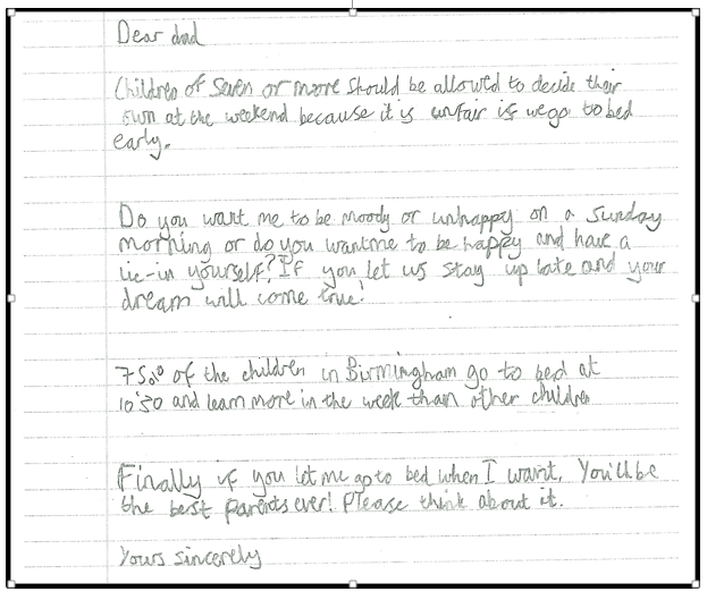 Dear dad
Children of Seven or more should be allowed to decide their
own at the weekend because it is unfair if we go to bed
early.
Do you want me to be moody or unhappy on a Sunday
morning or do you want me to be happy and have a
lie-in yourself? If you let us stay up late and your
dream will come true!
75% of the children in Birmingham go to bed at
10:30 and learn more in the week than other children
Finally if you let me go to bed when I want, You'll be
the best parents ever! Please think about it.
Yours sincerely